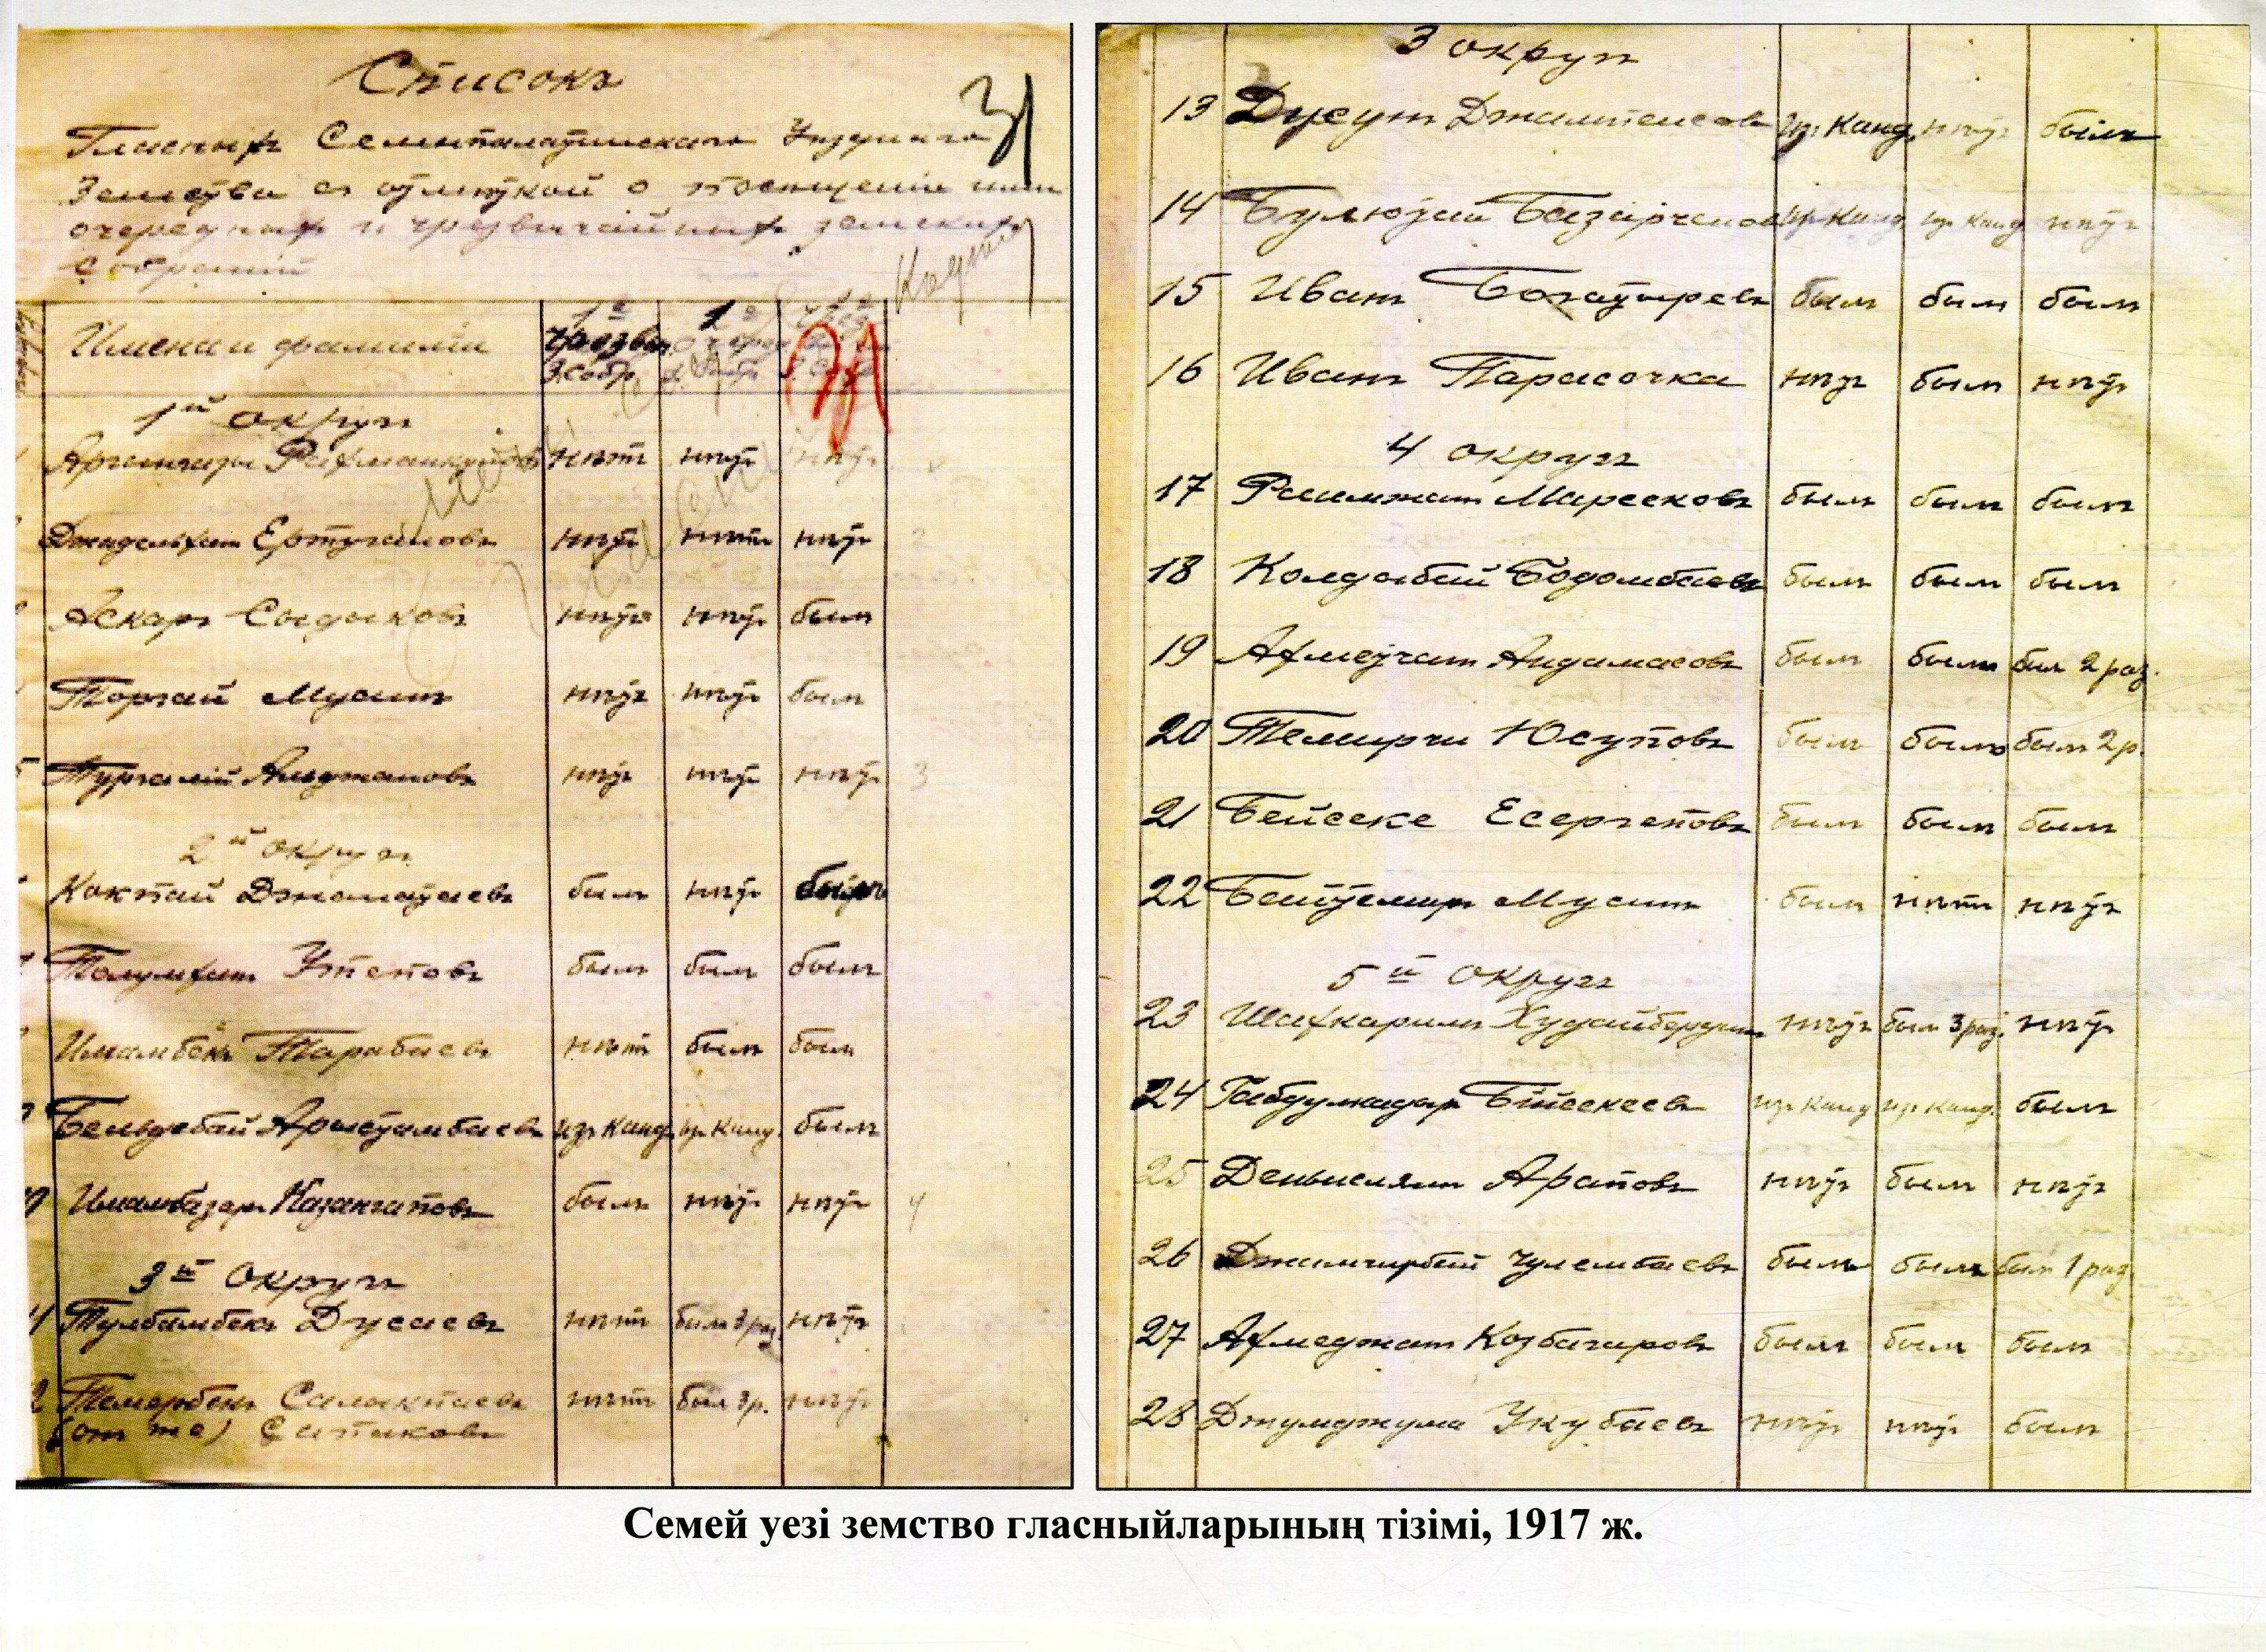 Списокъ
Гласныхъ Семипалатинскаго Уѣзднаго
Земства съ отмѣткой о посѣщеніи ими
очередныхъ и чрезвычайныхъ земскихъ
собраній
31
Имена и фамиліи 1е Чрезвыч З.собр 1е
31
1й округъ
Аргынгазы Рахманкуловъ нѣтъ нѣтъ нѣтъ
Джидельханъ Ертугановъ нѣтъ нѣтъ нѣтъ 2
Аскаръ Сыдыковъ нѣтъ нѣтъ былъ
Торгай Мусинъ нѣтъ нѣтъ былъ
5 Тургалій нѣтъ нѣтъ нѣтъ 3
2й округъ
Кокпай Джанатаевъ былъ нѣтъ былъ
Утеповъ былъ былъ былъ
Имамбекъ Тарабаевъ нѣтъ былъ былъ
Бельдебай Арыстамбаевъ изъ канд. изъ канд. былъ
Имамбазаръ Казангаповъ былъ нѣтъ нѣтъ 4
3й округъ
Тулбамбекъ Дусаевъ нѣтъ былъ 3 раз нѣтъ
Темирбекъ нѣтъ былъ 3р. нѣтъ
(онъ же) Сатпаковъ
3 округъ
13 Дусупъ изъ канд. нѣтъ былъ
14 изъ канд. изъ канд нѣтъ
15 Иванъ Богатыревъ былъ былъ былъ
16 Иванъ Парасочка нѣтъ былъ нѣтъ
4 округъ
17 Раимжанъ Марсековъ былъ былъ былъ
18 Колдыбай Бодомбаевъ былъ былъ былъ
19 Ахметжанъ Андамасовъ былъ былъ был 2 раз.
20 Темирчи Юсуповъ былъ былъ был 2 р.
21 Бейсеке Есергеповъ былъ былъ былъ
22 Бейтемиръ Мусинъ былъ нѣтъ нѣтъ
5й округъ
23 Шахкаримъ Худайбердинъ нѣтъ был 3 раз. нѣтъ
24 Габдулкадаръ Бійсекеевъ изъ канд изъ канд. былъ
25 Араповъ нѣтъ былъ нѣтъ
26 Чулембаевъ былъ былъ был 1 раз
27 Ахмеджанъ Козбагаровъ былъ былъ былъ
28 Джумджума Укубаевъ нѣтъ нѣтъ былъ
Семей уезі земство гласныйларының тізімі, 1917 ж.